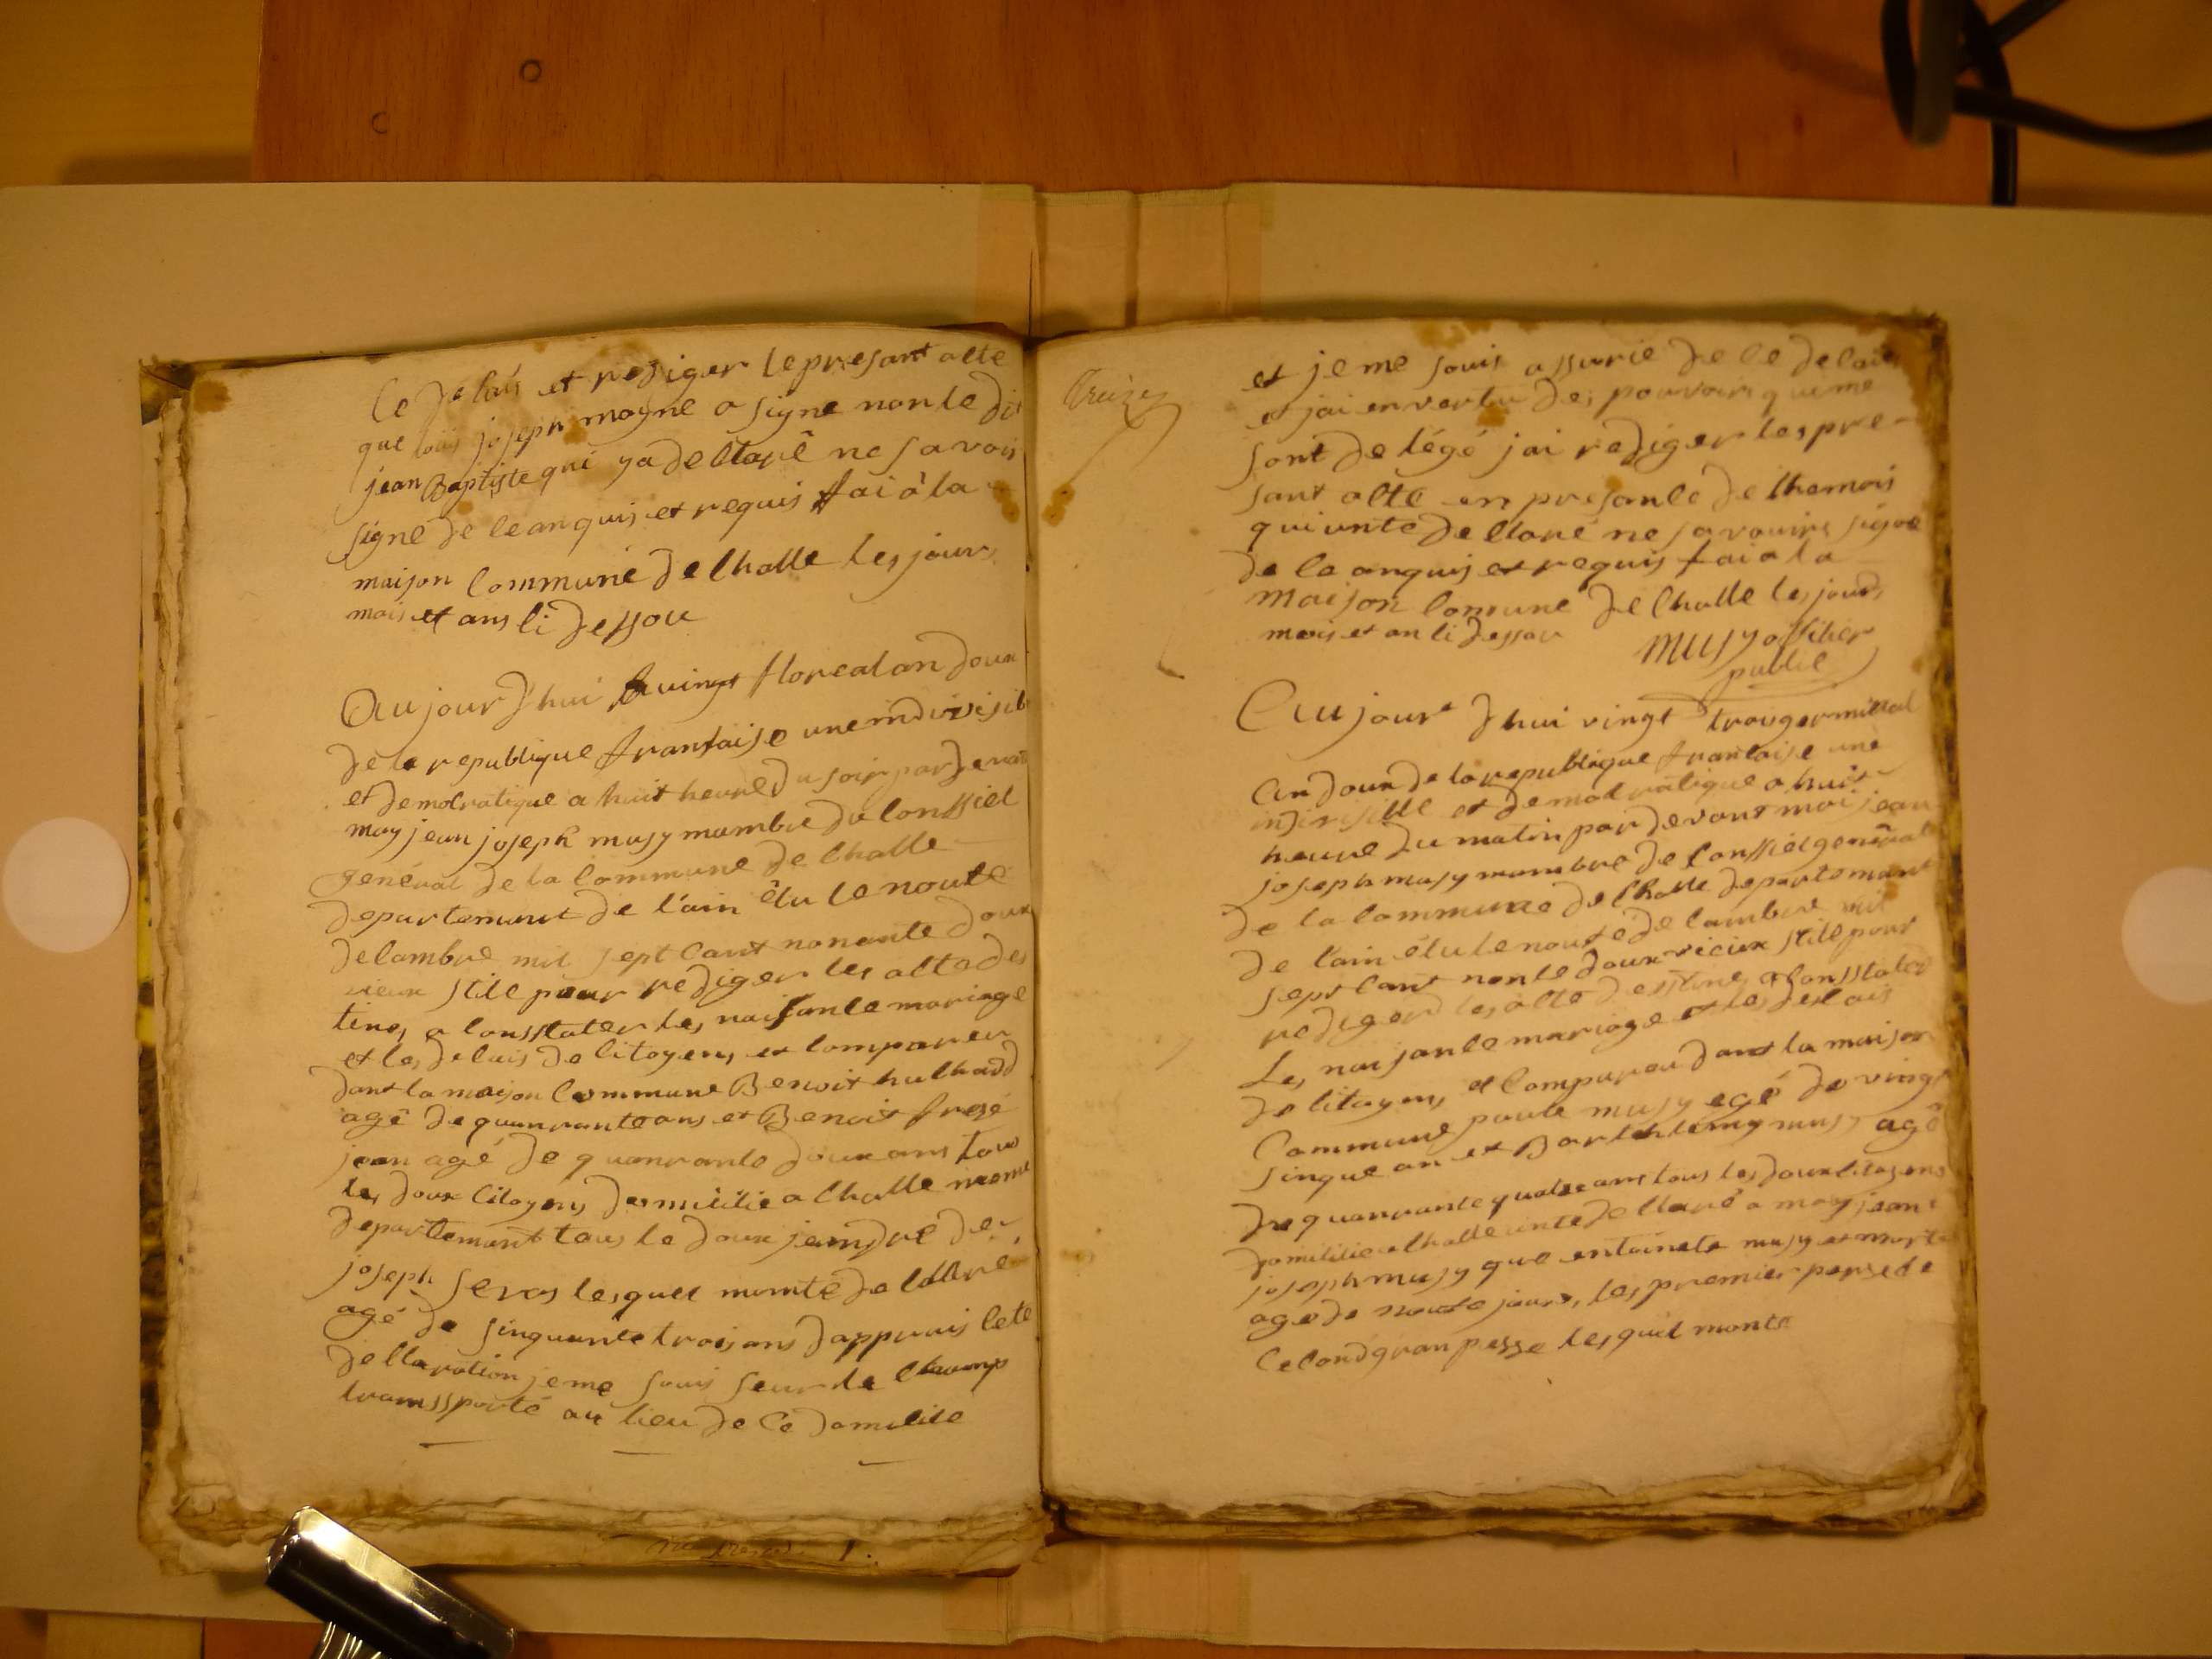 Ce delais et rediger le presant alte
que loüis joseph moyne a signe non le dit
jean Baptiste qui ya dellarê ne savoir
signe de le anquis et requis fai à la
maison Commune de Challe les jours
mois et ans li dessou
Aujourd'hui vingt floreal an doux
de la republique franfaise une indivisib
et demolratique a huit heure du soir par devan
moy jean joseph musy mambre du lonssiel
general de la Commune de Challe
departemant de l'ain êlu le nouke
delambre mil sept Cant nonante doux
vieux stile pour rediger les alte des
tines a lonsstater les naissanle mariage
et les delais de litoyens et lomparer
dant la maison Commune Benoit hulhadd
agê de quanrante ans et Benoit
jean agé de quanrante doux ans tous
les doux litoyens domilitie a Challe meme
departemant tous le doux jeandre de
joseph les quel monte dellare
agé de sinquante trois ans dappruis lete
dellaration je me souis seur le Champ
transsporté au lieu de Ce domilile
Treize
et je me souis assurie de le delais
et jai en vertu des pouvoirs que me
sont delégé jai rediger les pre-
sant alte en presanle de themois
qui unte dellarê ne savouirs signe
de le anquis et requis fai a la
maison Commune de Challe les jours
mois et an li dessou
musy offilier
publil
Aujourd'hui vingt trois germinal
an doux de la republique franlaise une
indivisible et demolratique a huit
heure du matin par devant moi jean
joseph musy mambre de lonssiel general
de la Commune de Challe departemant
de l'ain élu le nouke delambre mil
sept Cant nonte doux vieux stile pour
rediger les alte desstines a lonsstater
Les naissanle mariage et les delais
de litoyens et Comparou dant la maison
Commune paule musy egé de vingt
sinque an et Barthlémy musy agê
de quanrante quatre ans tous les doux litoyens
domilitie a Challe unte dellaré a moy jean
joseph musy que entoinete musy et morte
age de nouke jours, les premier perse de
Celond gran pesse les quil monte